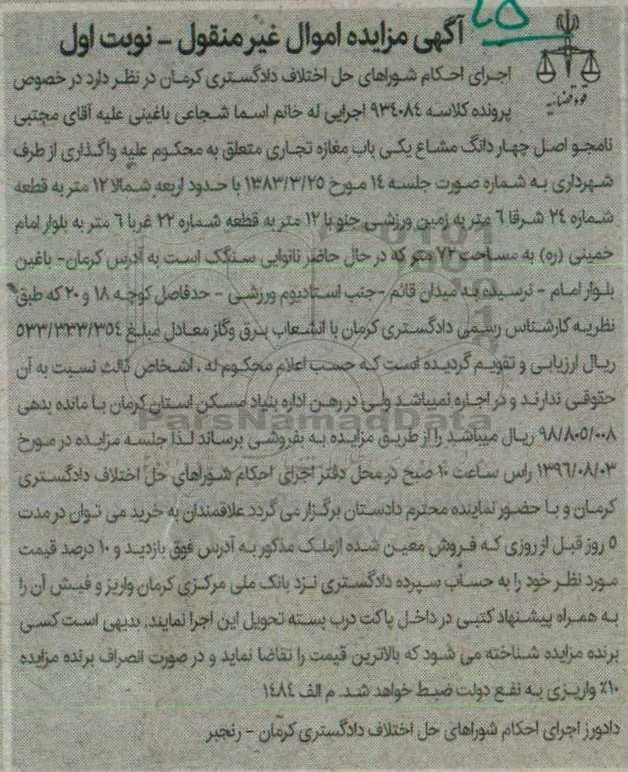 ۲۵
آگهی مزایده اموال غیر منقول - نوبت اول
قوه قضائیه
اجرای احکام شوراهای حل اختلاف دادگستری کرمان در نظر دارد در خصوص
پرونده کلاسه ۹۳۴۰۸٤ اجرایی له خانم اسما شجاعی باغینی علیه آقای مجتبی
نامجو اصل چهار دانگ مشاع یکی باب مغازه تجاری متعلق به محکوم علیه واگذاری از طرف
شهرداری به شماره صورت جلسه ۱٤ مورخ ۱۳۸۳/۳/۲۵ با حدود اربعه شمالا ۱۲ متر به قطعه
شماره ۲٤ شرقا ٦ متر به زمین ورزشی جنوبا ۱۲ متر به قطعه شماره ۲۲ غربا ٦ متر به بلوار امام
خمینی (ره) به مساحت ۷۲ متر که در حال حاضر نانوایی سنگک است به آدرس کرمان- باغین
بلوار امام - نرسیده به میدان قائم -جنب استادیوم ورزشی - حدفاصل کوچه ۱۸ و ۲۰ که طبق
نظریه کارشناس رسمی دادگستری کرمان با انشعاب برق وگاز معادل مبلغ ۵۳۳/۳۳۳/۳۵٤
ریال ارزیابی و تقویم گردیده است که حسب اعلام محکوم له ، اشخاص ثالث نسبت به آن
حقوقی ندارند و در اجاره نمیباشد ولی در رهن اداره بنیاد مسکن استان کرمان با مانده بدهی
۹۸/۸۰۵/۰۰۸ ریال میباشد را از طریق مزایده به بفروشی برساند لذا جلسه مزایده در مورخ
۱۳۹٦/۰۸/۰۳ راس ساعت ۱۰ صبح در محل دفتر اجرای احکام شوراهای حل اختلاف دادگستری
کرمان و با حضور نماینده محترم دادستان برگزار می گردد علاقمندان به خرید می توان در مدت
۵ روز قبل از روزی که فروش معین شده ازملک مذکور به آدرس فوق بازدید و ۱۰ درصد قیمت
مورد نظر خود را به حساب سپرده دادگستری نزد بانک ملی مرکزی کرمان واریز و فیش آن را
به همراه پیشنهاد کتبی در داخل پاکت درب بسته تحویل این اجرا نمایند. بدیهی است کسی
برنده مزایده شناخته می شود که بالاترین قیمت را تقاضا نماید و در صورت انصراف برنده مزایده
۱۰٪ واریزی به نفع دولت ضبط خواهد شد. م الف ۱٤۸٤
دادورز اجرای احکام شوراهای حل اختلاف دادگستری کرمان - رنجبر
ParsNamadData